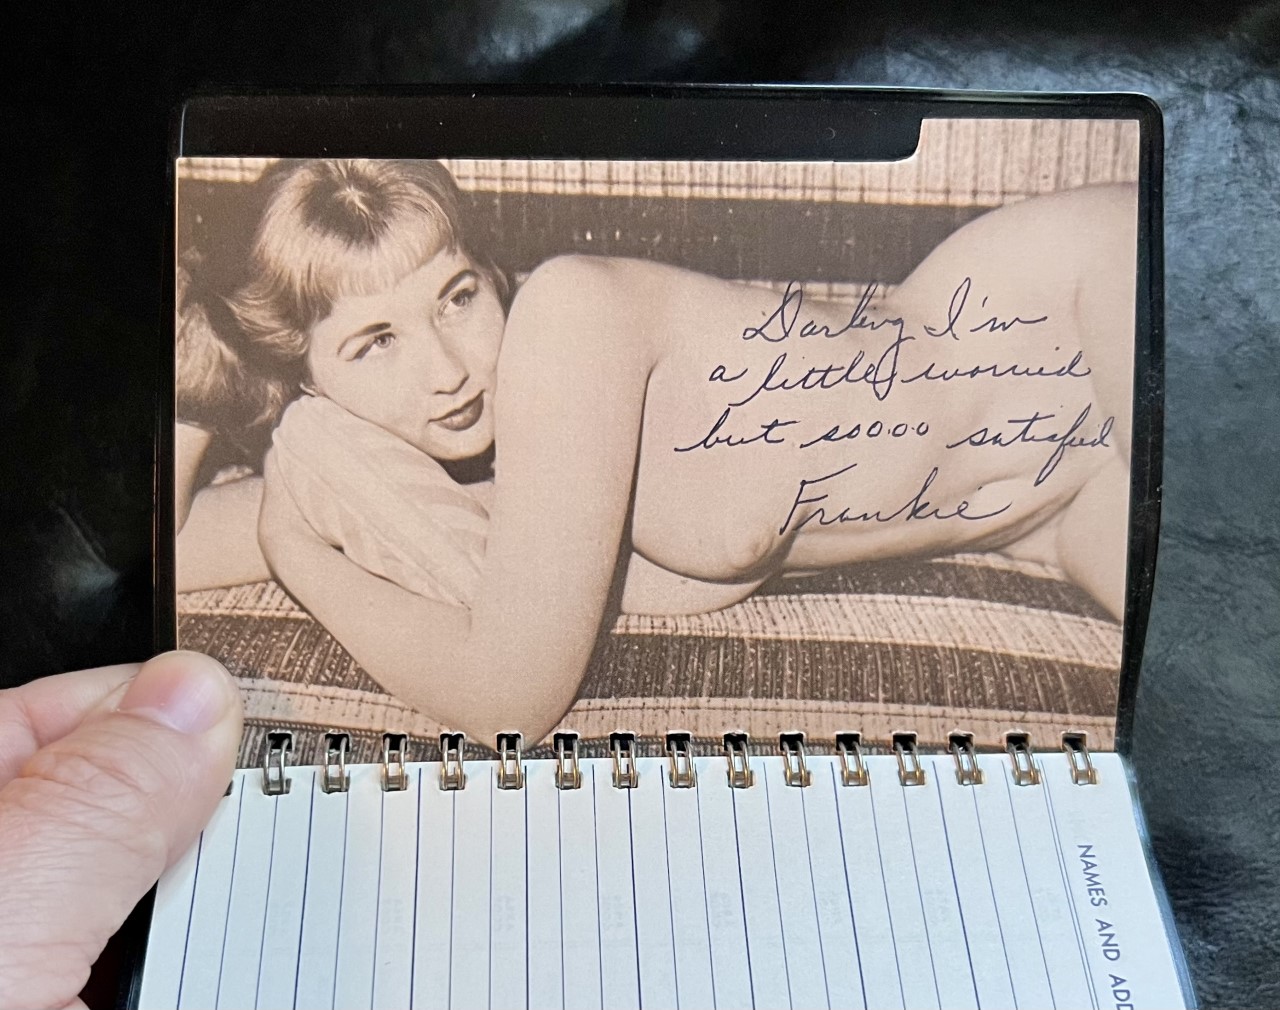 Darling I'm
a little worried
but sooooo satisfied
Frankie
NAMES AND ADD